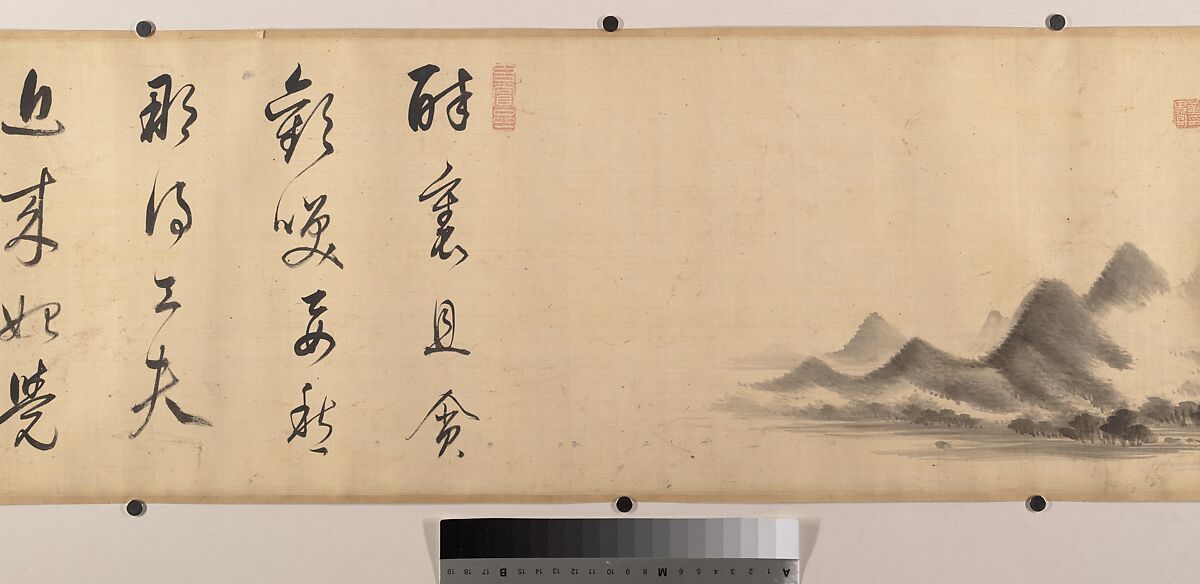 醉裏且貪
歡咲要愁
那得工夫
近來始覺
A 1 2 3 4 5 6 M 8 9 10 11 12 13 14 15 B 17 18 19